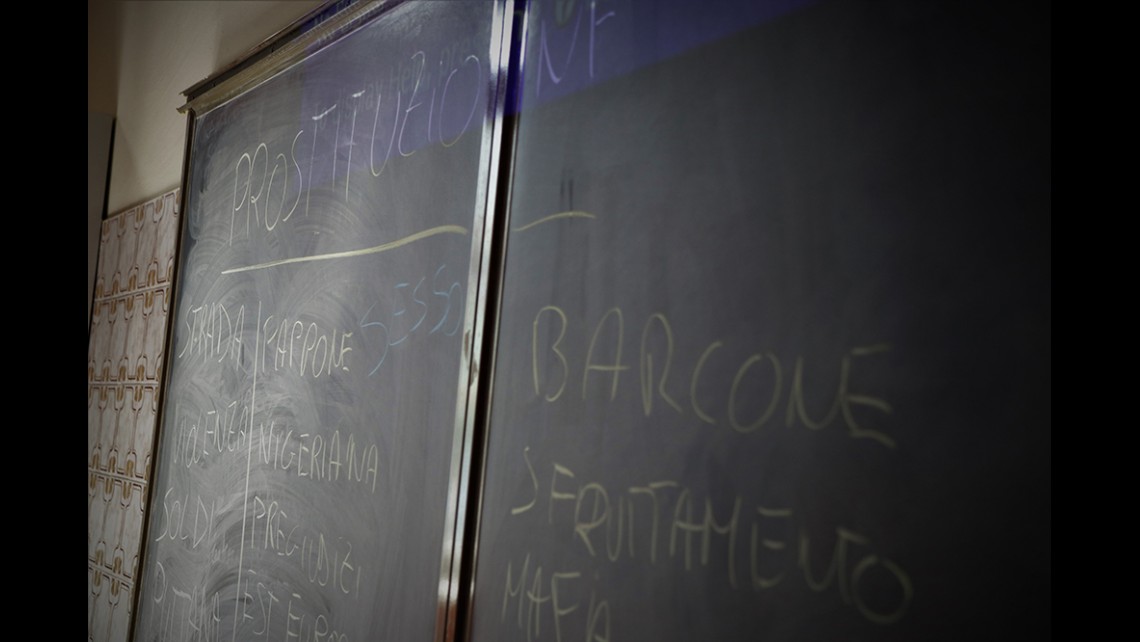 PROSTITUZIONE
SESSO
STRADA PAPPONE
VIOLENZA NIGERIANA
SOLDI PREGIUDIZI
PUTTANA EST
BARCONE
SFRUTTAMENTO
MAFIA